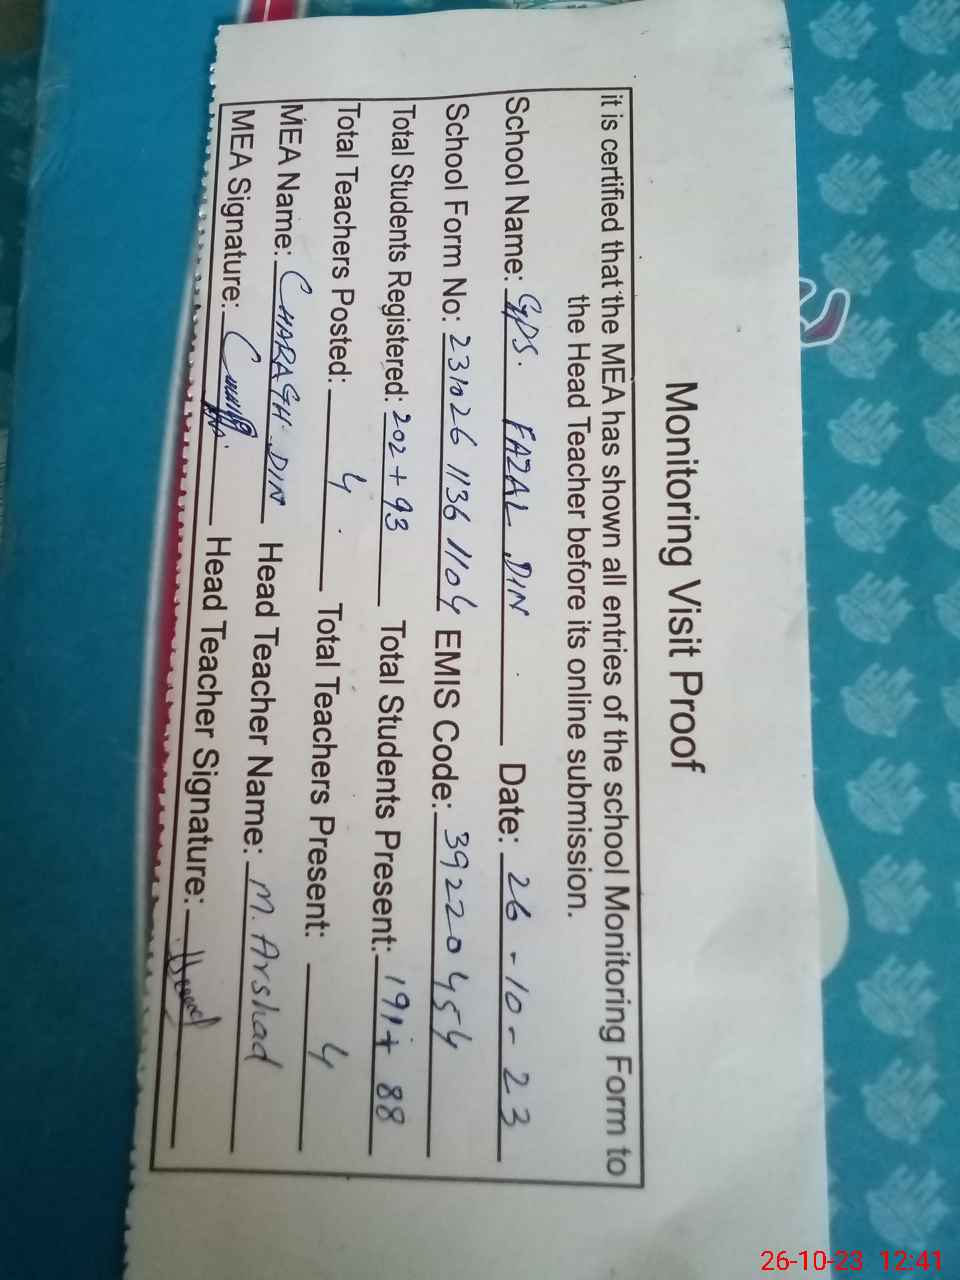 Monitoring Visit Proof
it is certified that the MEA has shown all entries of the school Monitoring Form to
the Head Teacher before its online submission.
School Name: GPS. FAZAL DIN Date: 26-10-23
School Form No: 231026 1136 1104 EMIS Code: 39220454
Total Students Registered: 202 + 93 Total Students Present: 191 + 88
Total Teachers Posted: 4 Total Teachers Present: 4
MEA Name: CHARAGH DIN Head Teacher Name: M. Arshad
MEA Signature: Head Teacher Signature:
26-10-23 12:41